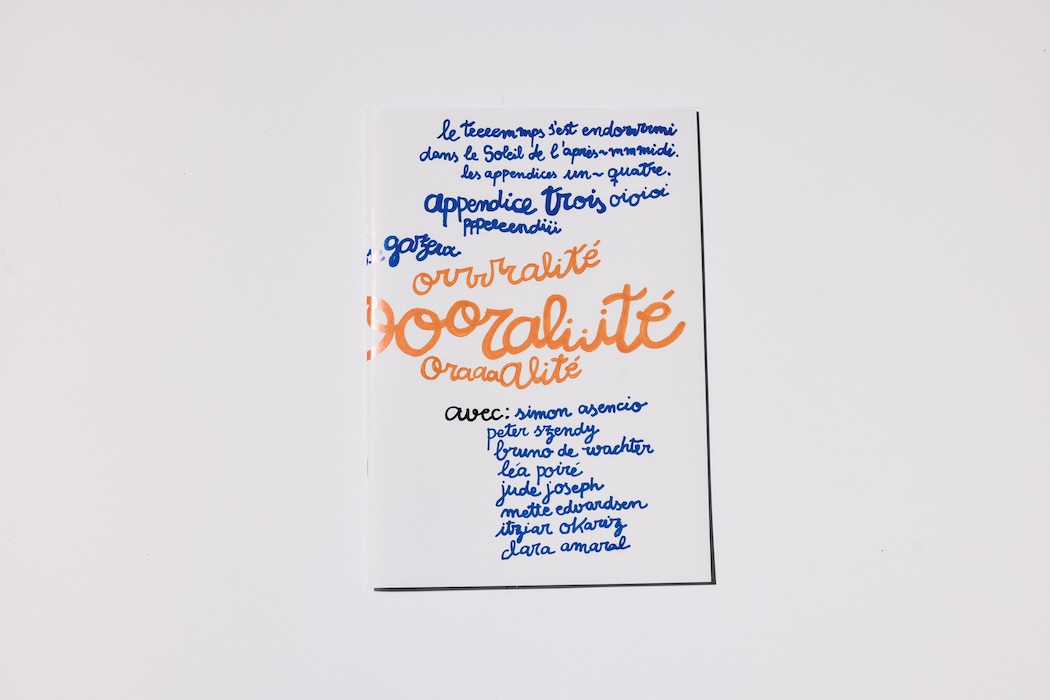 le teeeemmps s'est endorrrrmi
dans le Soleil de l'après~mmmidi.
les appendices un~quatre.
appendice trois oioioi
pppeeecendiii
se gazera
orrrralité
oooraliiité
oraaaalité
avec: simon asencio
peter szendy
bruno de wachter
léa poiré
jude joseph
mette edvardsen
itziar okariz
clara amaral